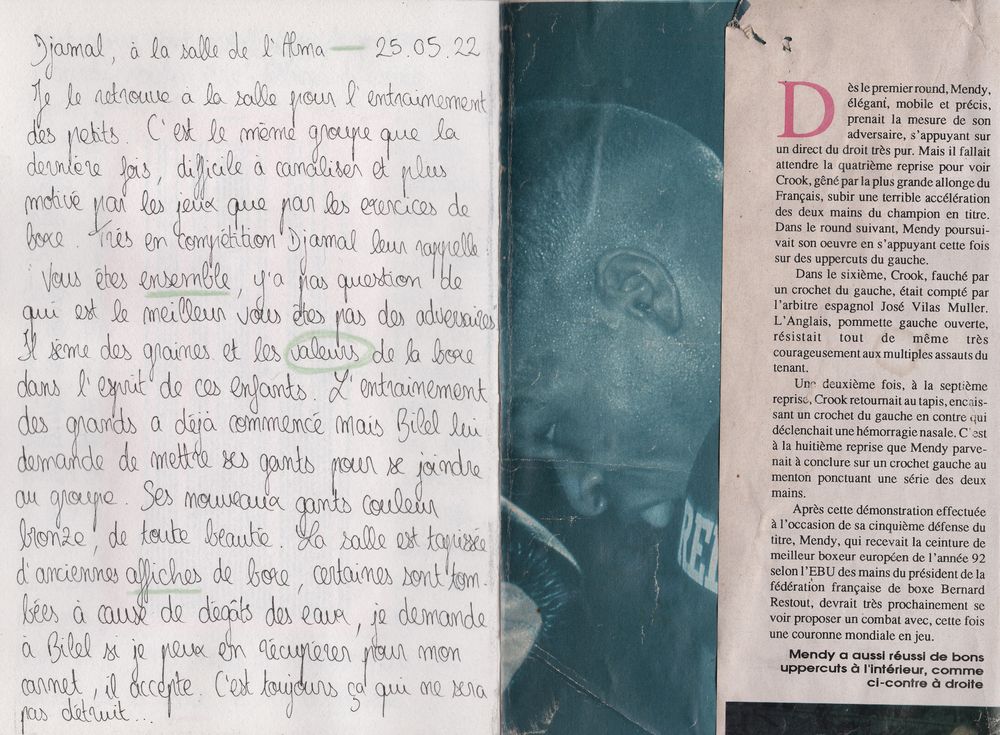 Djamal, à la salle de l'Alma — 25.05.22
Je le retrouve à la salle pour l'entrainement
des petits. C'est le même groupe que la
dernière fois, difficile à canaliser et plus
motivé par les jeux que par les exercices de
boxe. Très en compétition Djamal leur rappelle
"Vous êtes ensemble, y'a pas question de
qui est le meilleur vous êtes pas des adversaires"
Il sème des graines et les valeurs de la boxe
dans l'esprit de ces enfants. L'entrainement
des grands a déjà commencé mais Bilel lui
demande de mettre ses gants pour se joindre
au groupe. Ses nouveaux gants couleur
bronze, de toute beauté. La salle est tapissée
d'anciennes affiches de boxe, certaines sont tom-
bées à cause de dégâts des eaux, je demande
à Bilel si je peux en récupérer pour mon
carnet, il accepte. C'est toujours ça qui ne sera
pas détruit...
REI
Dès le premier round, Mendy,
élégant, mobile et précis,
prenait la mesure de son
adversaire, s'appuyant sur
un direct du droit très pur. Mais il fallait
attendre la quatrième reprise pour voir
Crook, gêné par la plus grande allonge du
Français, subir une terrible accélération
des deux mains du champion en titre.
Dans le round suivant, Mendy poursui-
vait son oeuvre en s'appuyant cette fois
sur des uppercuts du gauche.
Dans le sixième, Crook, fauché par
un crochet du gauche, était compté par
l'arbitre espagnol José Vilas Muller.
L'Anglais, pommette gauche ouverte,
résistait tout de même très
courageusement aux multiples assauts du
tenant.
Une deuxième fois, à la septième
reprise, Crook retournait au tapis, encais-
sant un crochet du gauche en contre qui
déclenchait une hémorragie nasale. C'est
à la huitième reprise que Mendy parve-
nait à conclure sur un crochet gauche au
menton ponctuant une série des deux
mains.
Après cette démonstration effectuée
à l'occasion de sa cinquième défense du
titre, Mendy, qui recevait la ceinture de
meilleur boxeur européen de l'année 92
selon l'EBU des mains du président de la
fédération française de boxe Bernard
Restout, devrait très prochainement se
voir proposer un combat avec, cette fois
une couronne mondiale en jeu.
Mendy a aussi réussi de bons
uppercuts à l'intérieur, comme
ci-contre à droite